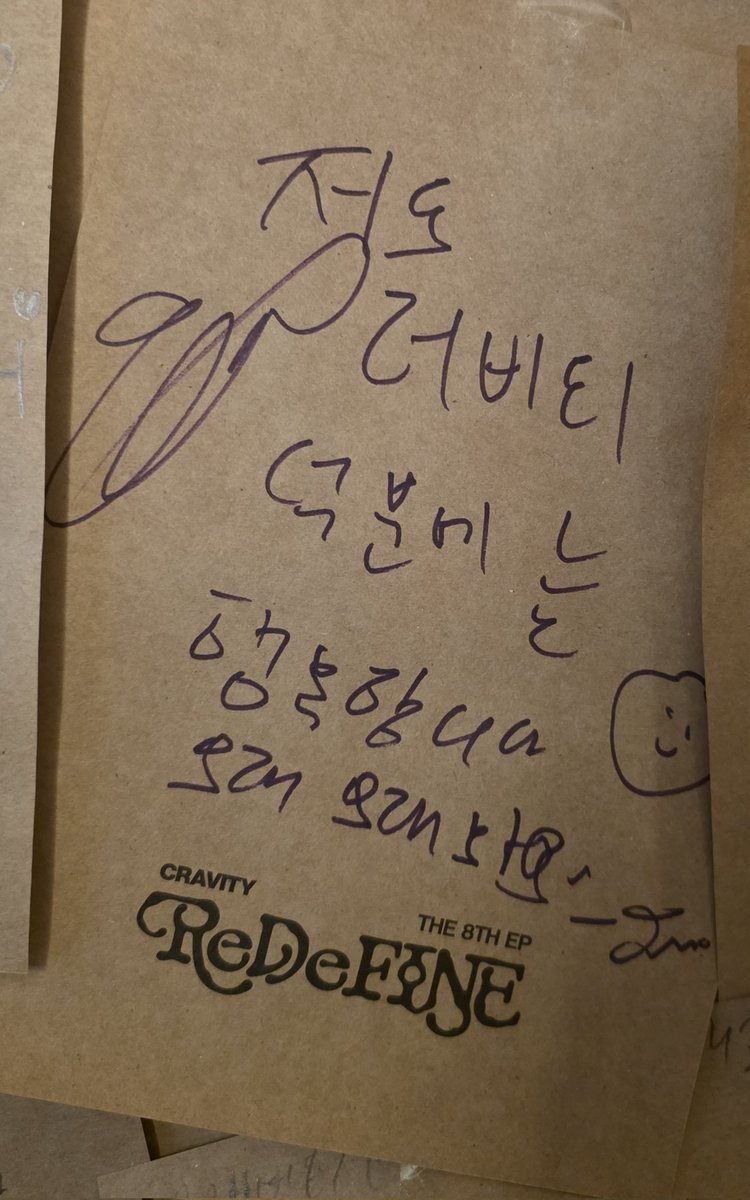 저도
러비티
덕분에 는
행복합니다
오래 오래
CRAVITY
THE 8TH EP
ReDeFINE